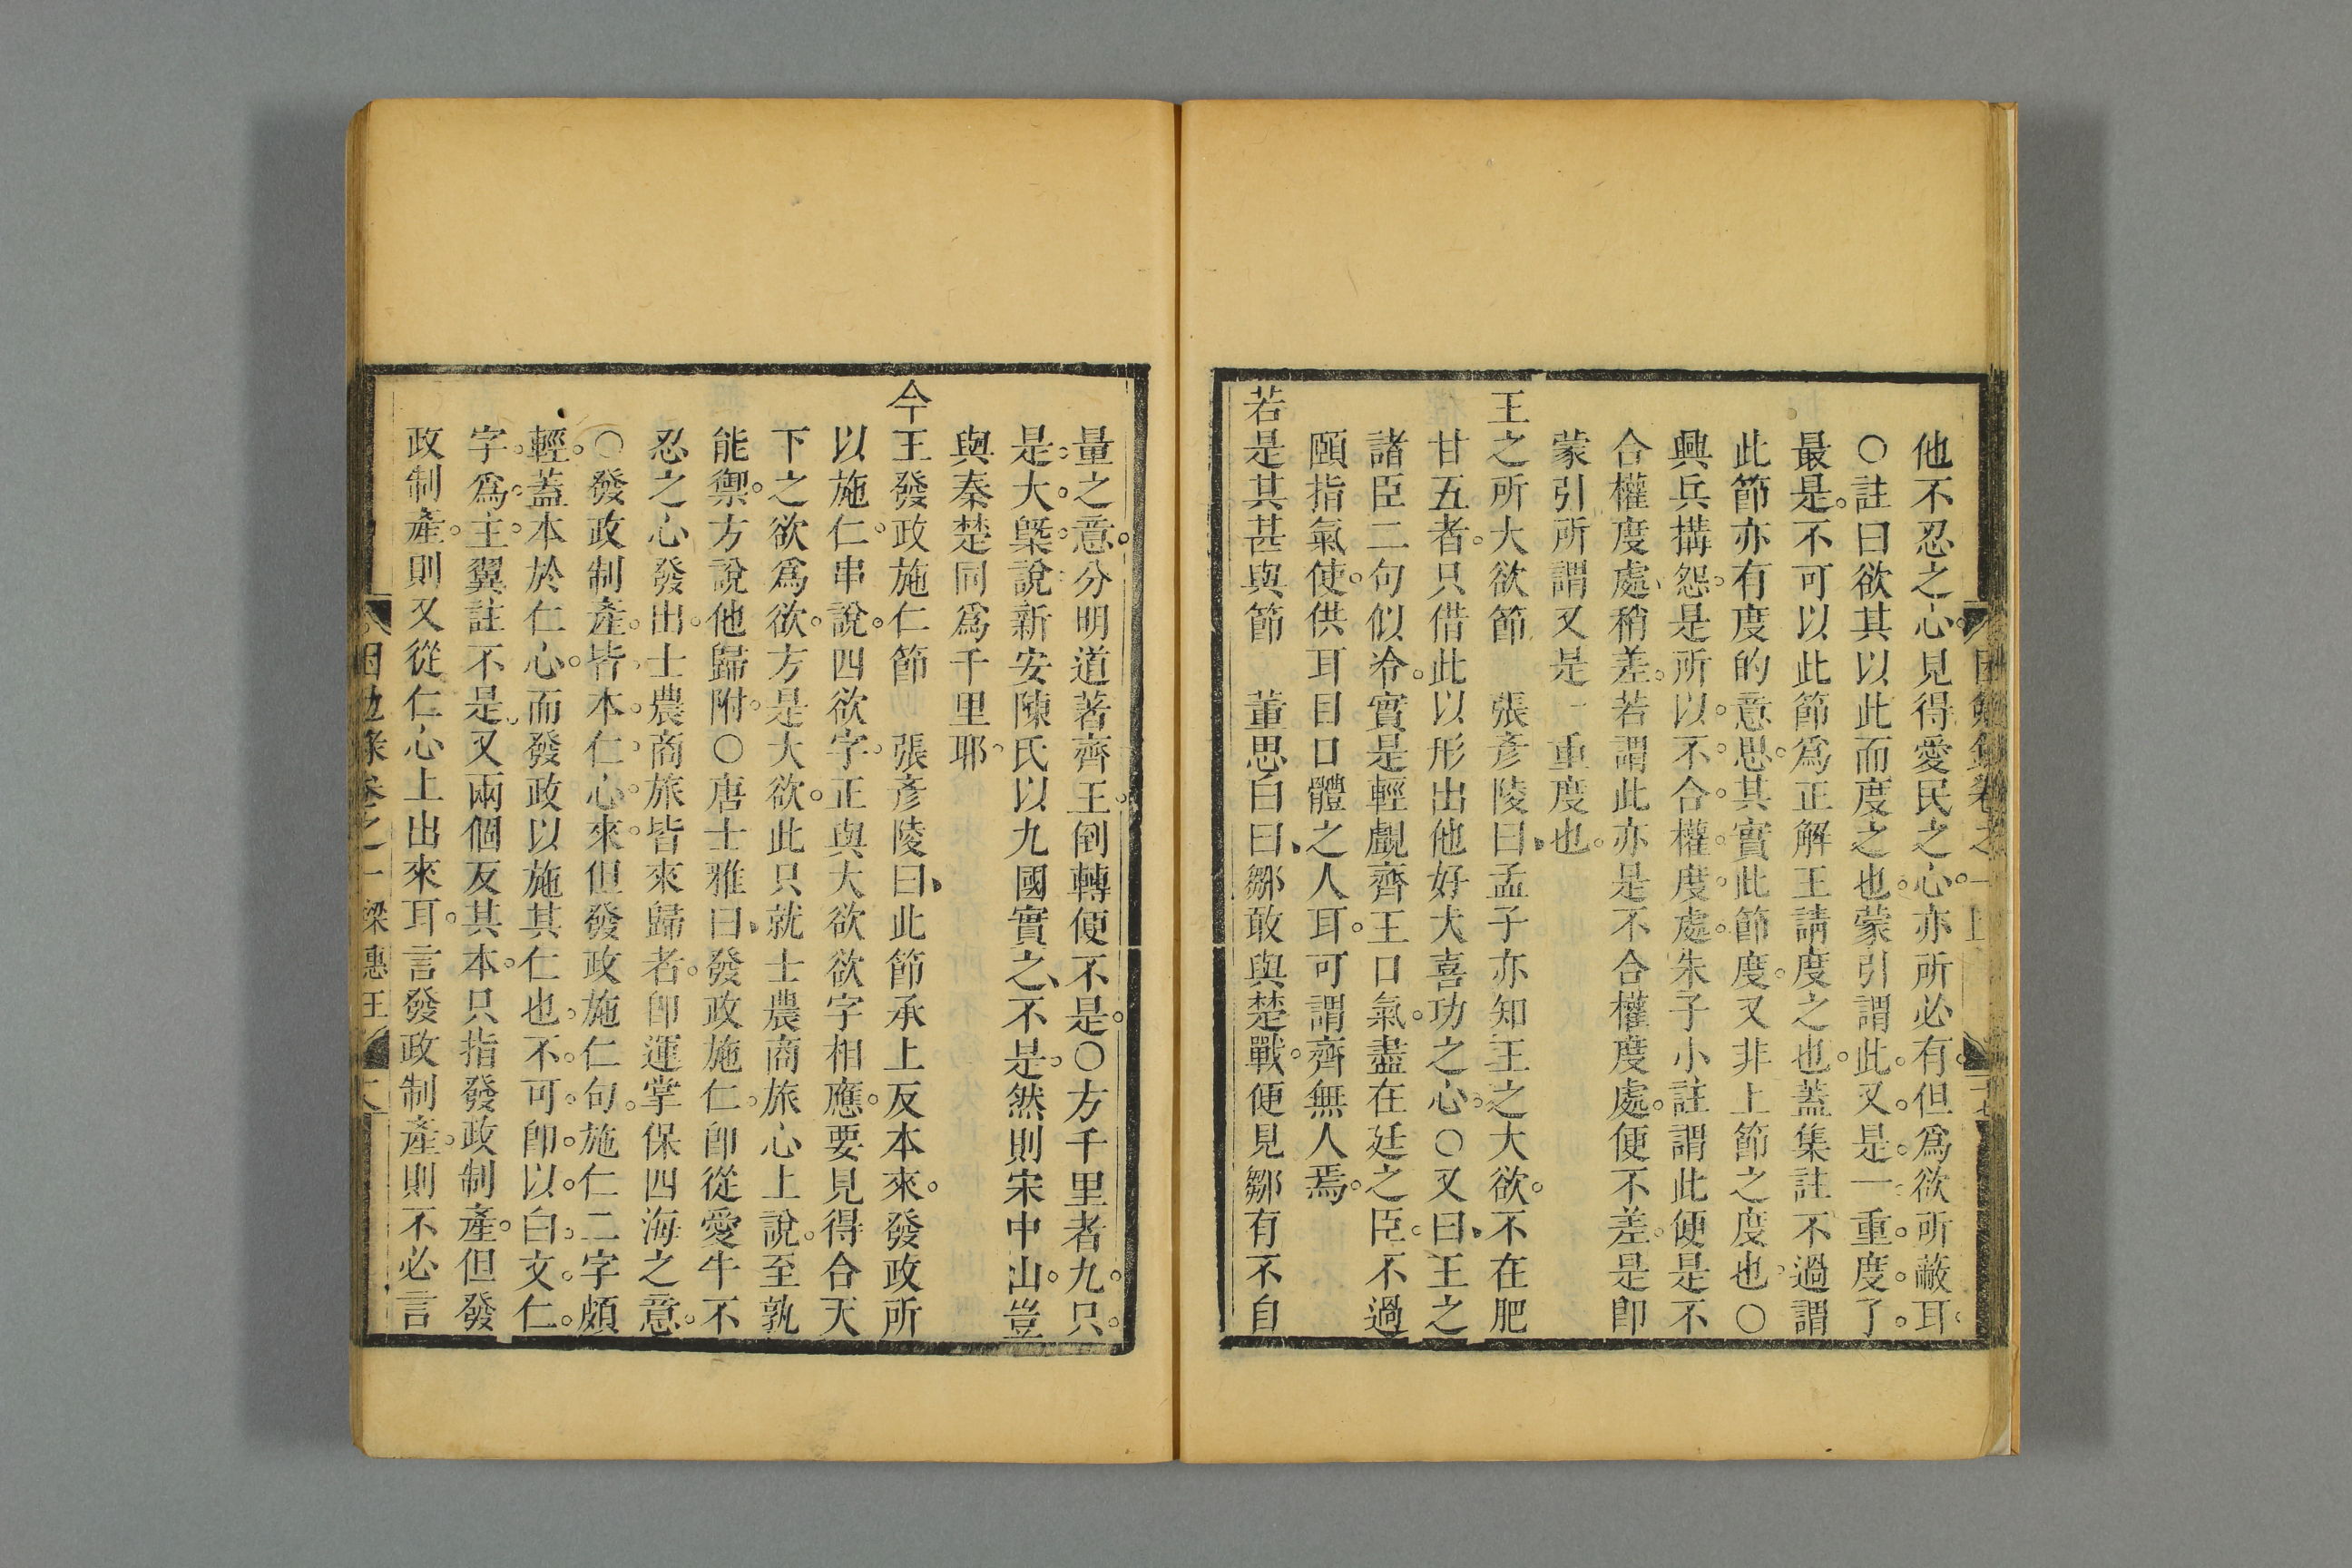 他不忍之心見得愛民之心亦所必有但爲欲所蔽耳
○註曰欲其以此而度之也蒙引謂此又是一重度了
最是不可以此節爲正解王請度之也蓋集註不過謂
此節亦有度的意思其實此節度又非上節之度也○
興兵搆怨是所以不合權度處朱子小註謂此便是不
合權度處稍差若謂此亦是不合權度處便不差是卽
蒙引所謂又是一重度也
王之所大欲節 張彥陵曰孟子亦知王之大欲不在肥
甘五者只借此以形出他好大喜功之心○又曰王之
諸臣二句似冷實是輕覷齊王口氣盡在廷之臣不過
頤指氣使供耳目口體之人耳可謂齊無人焉
若是其甚與節 董思白曰鄒敢與楚戰便見鄒有不自
量之意分明道著齊王倒轉便不是○方千里者九只
是大槩說新安陳氏以九國實之不是然則宋中山豈
與秦楚同爲千里耶
今王發政施仁節 張彥陵曰此節承上反本來發政所
以施仁串說四欲字正與大欲欲字相應要見得合天
下之欲爲欲方是大欲此只就士農商旅心上說至孰
能禦方說他歸附○唐士雅曰發政施仁卽從愛牛不
忍之心發出士農商旅皆來歸者卽運掌保四海之意
○發政制產皆本仁心來但發政施仁句施仁二字頗
輕蓋本於仁心而發政以施其仁也不可卽以白文仁
字爲主翼註不是又兩個反其本只指發政制產但發
政制產則又從仁心上出來耳言發政制產則不必言
困勉錄卷之一 梁惠王